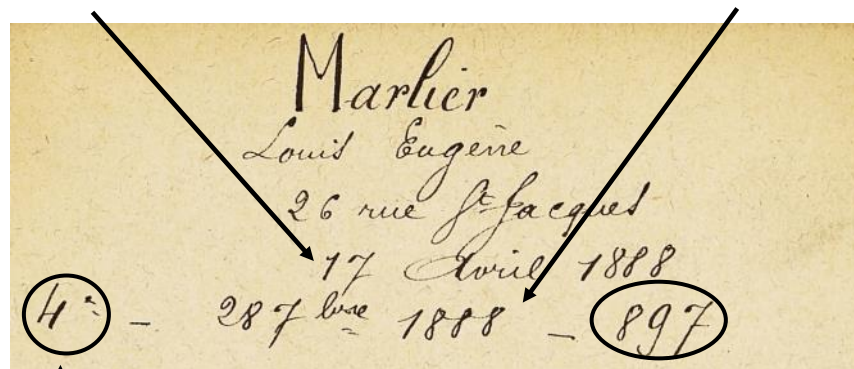 Marlier
Louis Eugène
26 rue St Jacques
17 Avril 1888
4e - 28 7bre 1888 - 897